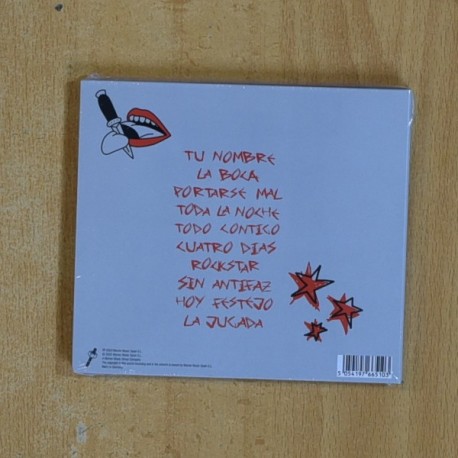 TU NOMBRE
LA BOCA
PORTARSE MAL
TODA LA NOCHE
TODO CONTIGO
CUATRO DIAS
ROCKSTAR
SIN ANTIFAZ
HOY FESTEJO
LA JUGADA
5 054197 665103